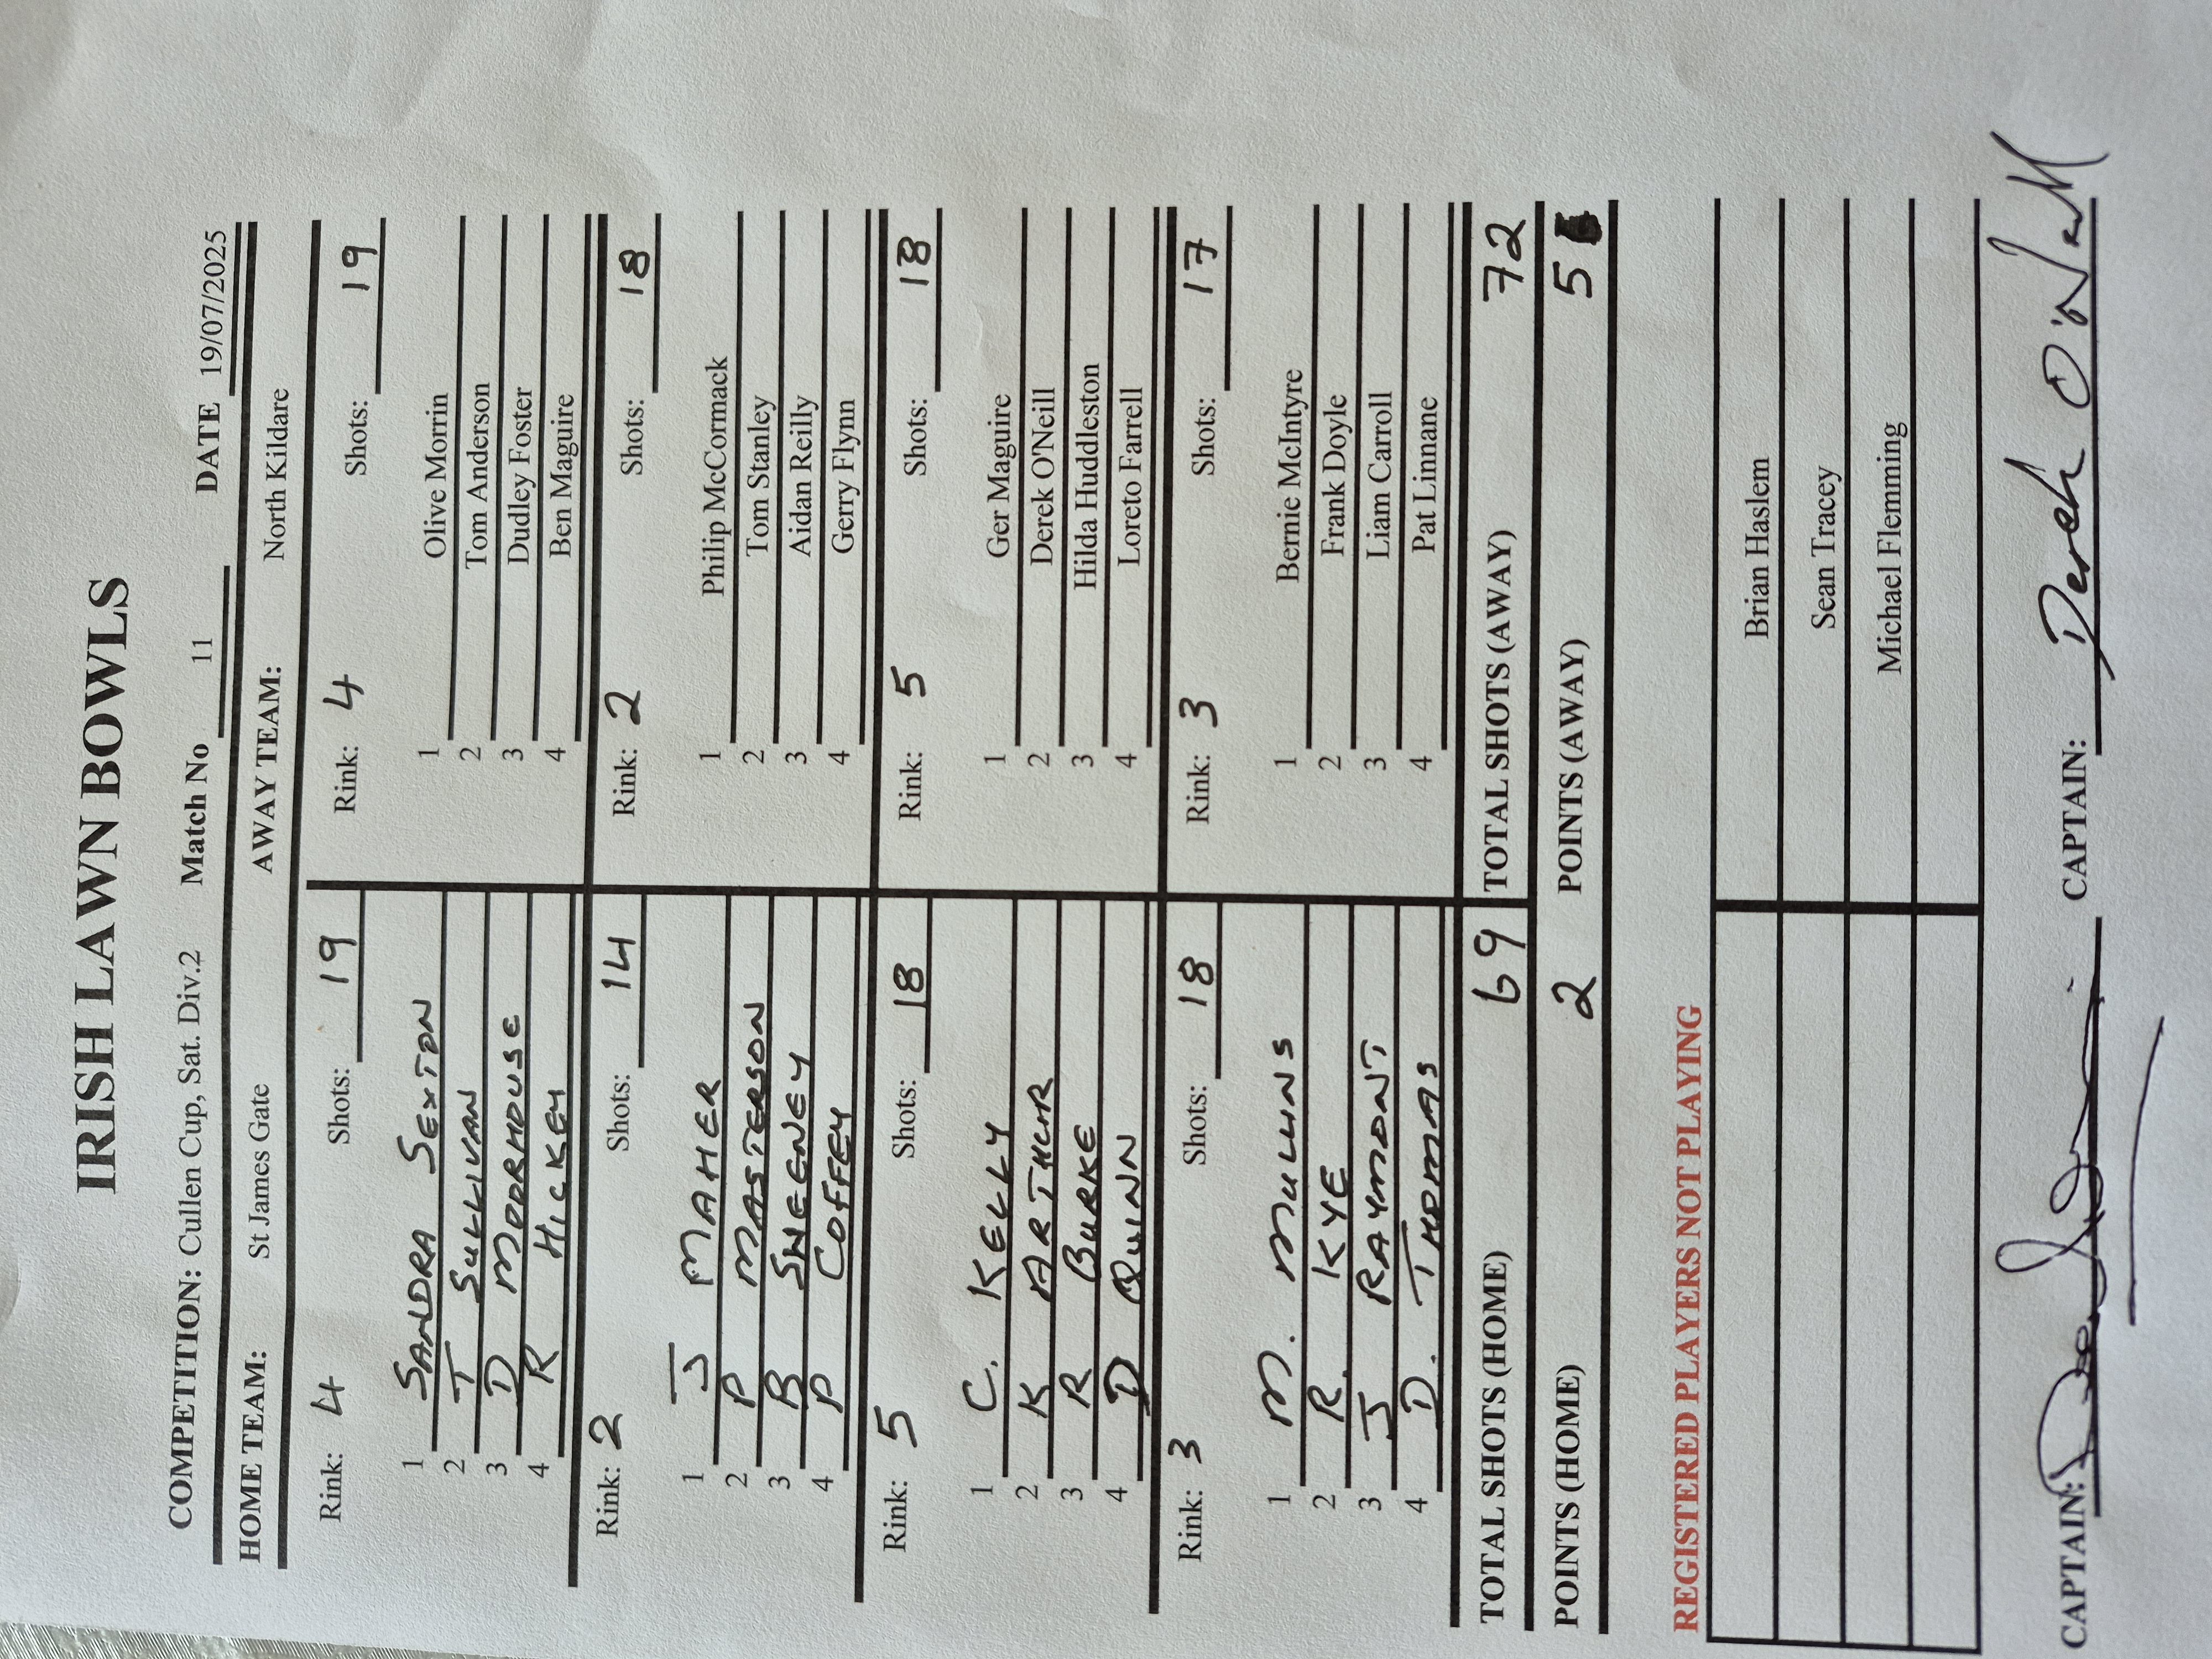 IRISH LAWN BOWLS
COMPETITION: Cullen Cup, Sat. Div.2 Match No 11 DATE 19/07/2025
HOME TEAM: St James Gate AWAY TEAM: North Kildare
Rink: 4 Shots: 19 Rink: 4 Shots: 19
1 SANDRA SEXTON 1 Olive Morrin
2 T SULLIVAN 2 Tom Anderson
3 D MOORHOUSE 3 Dudley Foster
4 R HICKEY 4 Ben Maguire
Rink: 2 Shots: 14 Rink: 2 Shots: 18
1 J MAHER 1 Philip McCormack
2 P MASTERSON 2 Tom Stanley
3 B SWEENEY 3 Aidan Reilly
4 P COFFEY 4 Gerry Flynn
Rink: 5 Shots: 18 Rink: 5 Shots: 18
1 C. KELLY 1 Ger Maguire
2 K ARTHUR 2 Derek O'Neill
3 R BURKE 3 Hilda Huddleston
4 D QUINN 4 Loreto Farrell
Rink: 3 Shots: 18 Rink: 3 Shots: 17
1 M. MULLINS 1 Bernie McIntyre
2 R. KYE 2 Frank Doyle
3 J RAYMONT 3 Liam Carroll
4 D. THOMAS 4 Pat Linnane
TOTAL SHOTS (HOME) 69 TOTAL SHOTS (AWAY) 72
POINTS (HOME) 2 POINTS (AWAY) 5
REGISTERED PLAYERS NOT PLAYING
Brian Haslem
Sean Tracey
Michael Flemming
CAPTAIN: CAPTAIN: Derek O'Neill